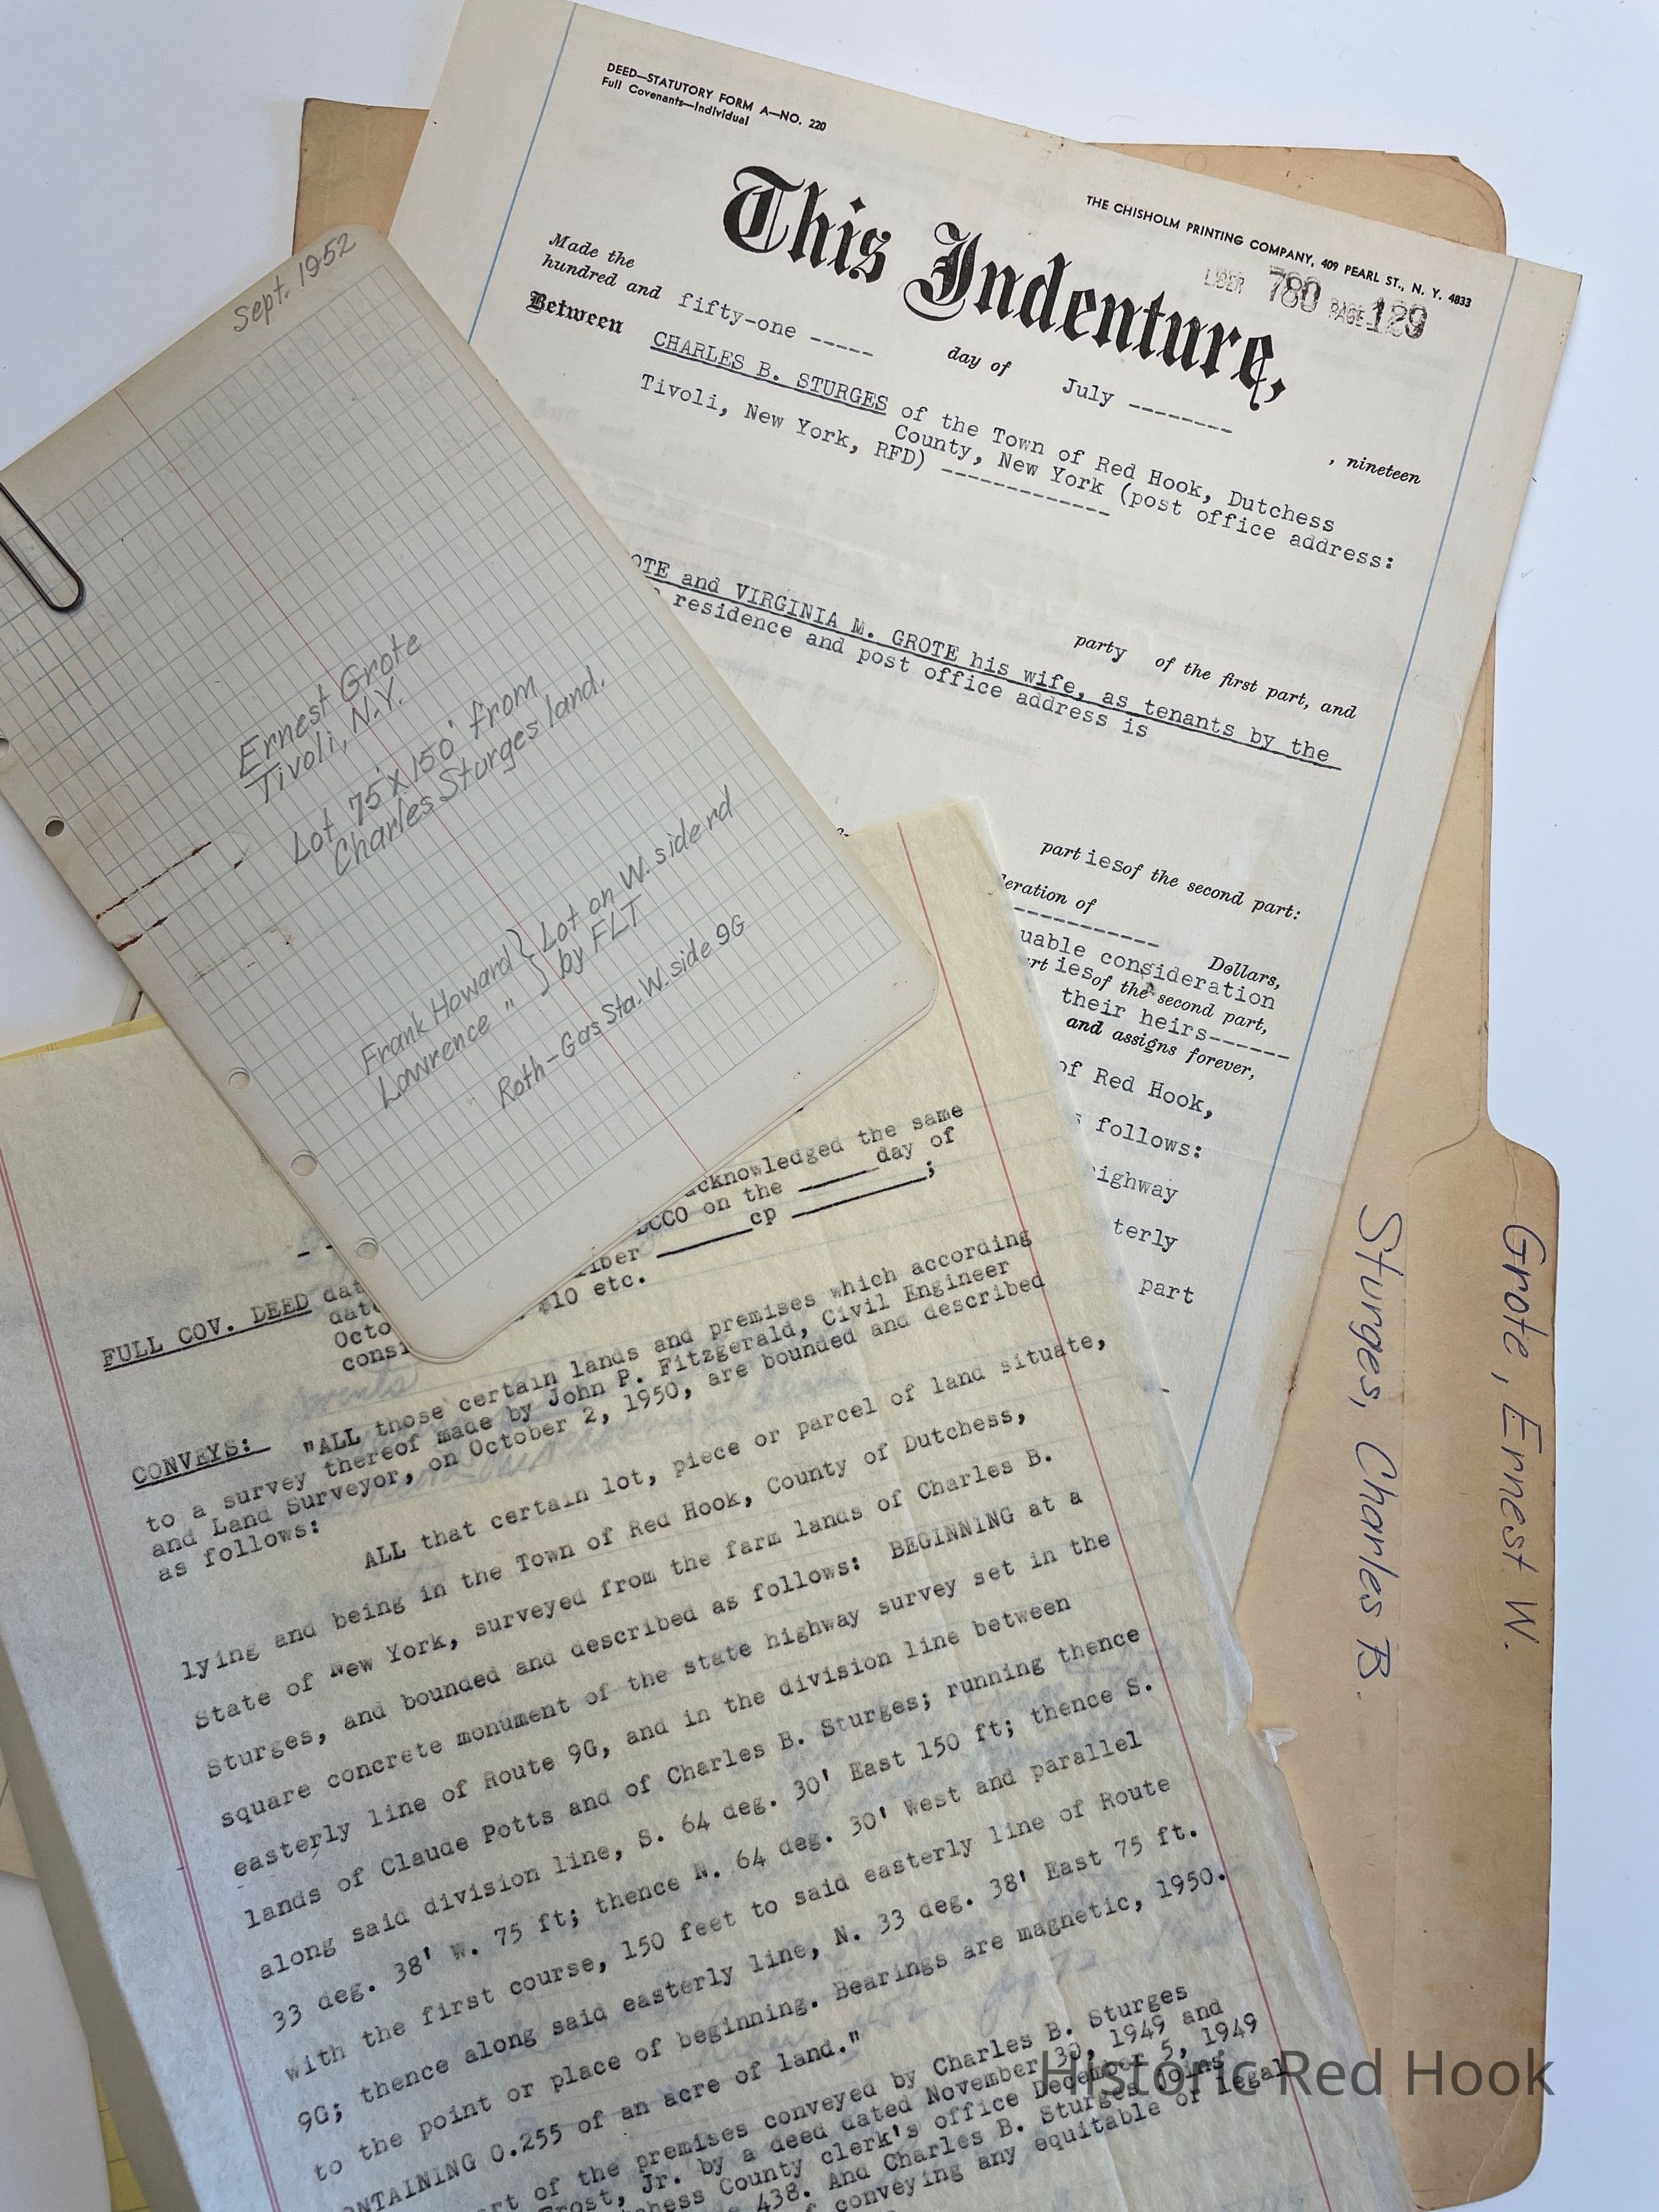 DEED—STATUTORY FORM A—NO. 220
Full Covenants—Individual
THE CHISHOLM PRINTING COMPANY, 409 PEARL ST., N. Y. 4833
This Indenture,
LIBER 780 PAGE 129
Made the day of July -------- , nineteen
hundred and fifty-one -----
Between CHARLES B. STURGES of the Town of Red Hook, Dutchess
County, New York (post office address:
Tivoli, New York, RFD) -------------
party of the first part, and
OTE and VIRGINIA M. GROTE his wife, as tenants by the
residence and post office address is
part ies of the second part:
eration of
Dollars,
uable consideration
rt ies of the second part,
their heirs------
and assigns forever,
of Red Hook,
follows:
ighway
terly
part
Sept. 1952
Ernest Grote
Tivoli, N.Y.
Lot 75' x 150' from
Charles Sturges land.
Frank Howard } Lot on W. side rd
Lawrence " } by FLT
Roth-Gas Sta. W. side 9G
cknowledged the same
CCO on the _____ day of
iber ______ cp ________;
$10 etc.
FULL COV. DEED dat
date
Octo
consi
CONVEYS: "ALL those certain lands and premises which according
to a survey thereof made by John P. Fitzgerald, Civil Engineer
and Land Surveyor, on October 2, 1950, are bounded and described
as follows:
ALL that certain lot, piece or parcel of land situate,
lying and being in the Town of Red Hook, County of Dutchess,
State of New York, surveyed from the farm lands of Charles B.
Sturges, and bounded and described as follows: BEGINNING at a
square concrete monument of the state highway survey set in the
easterly line of Route 9G, and in the division line between
lands of Claude Potts and of Charles B. Sturges; running thence
along said division line, S. 64 deg. 30' East 150 ft; thence S.
33 deg. 38' W. 75 ft; thence N. 64 deg. 30' West and parallel
with the first course, 150 feet to said easterly line of Route
9G; thence along said easterly line, N. 33 deg. 38' East 75 ft.
to the point or place of beginning. Bearings are magnetic, 1950.
ONTAINING 0.255 of an acre of land."
rt of the premises conveyed by Charles B. Sturges
Frost, Jr. by a deed dated November 30, 1949 and
chess County clerk's office December 5, 1949
438. And Charles B. Sturges joins
f conveying any equitable or legal
Grote, Ernest W.
Sturges, Charles B.
Historic Red Hook